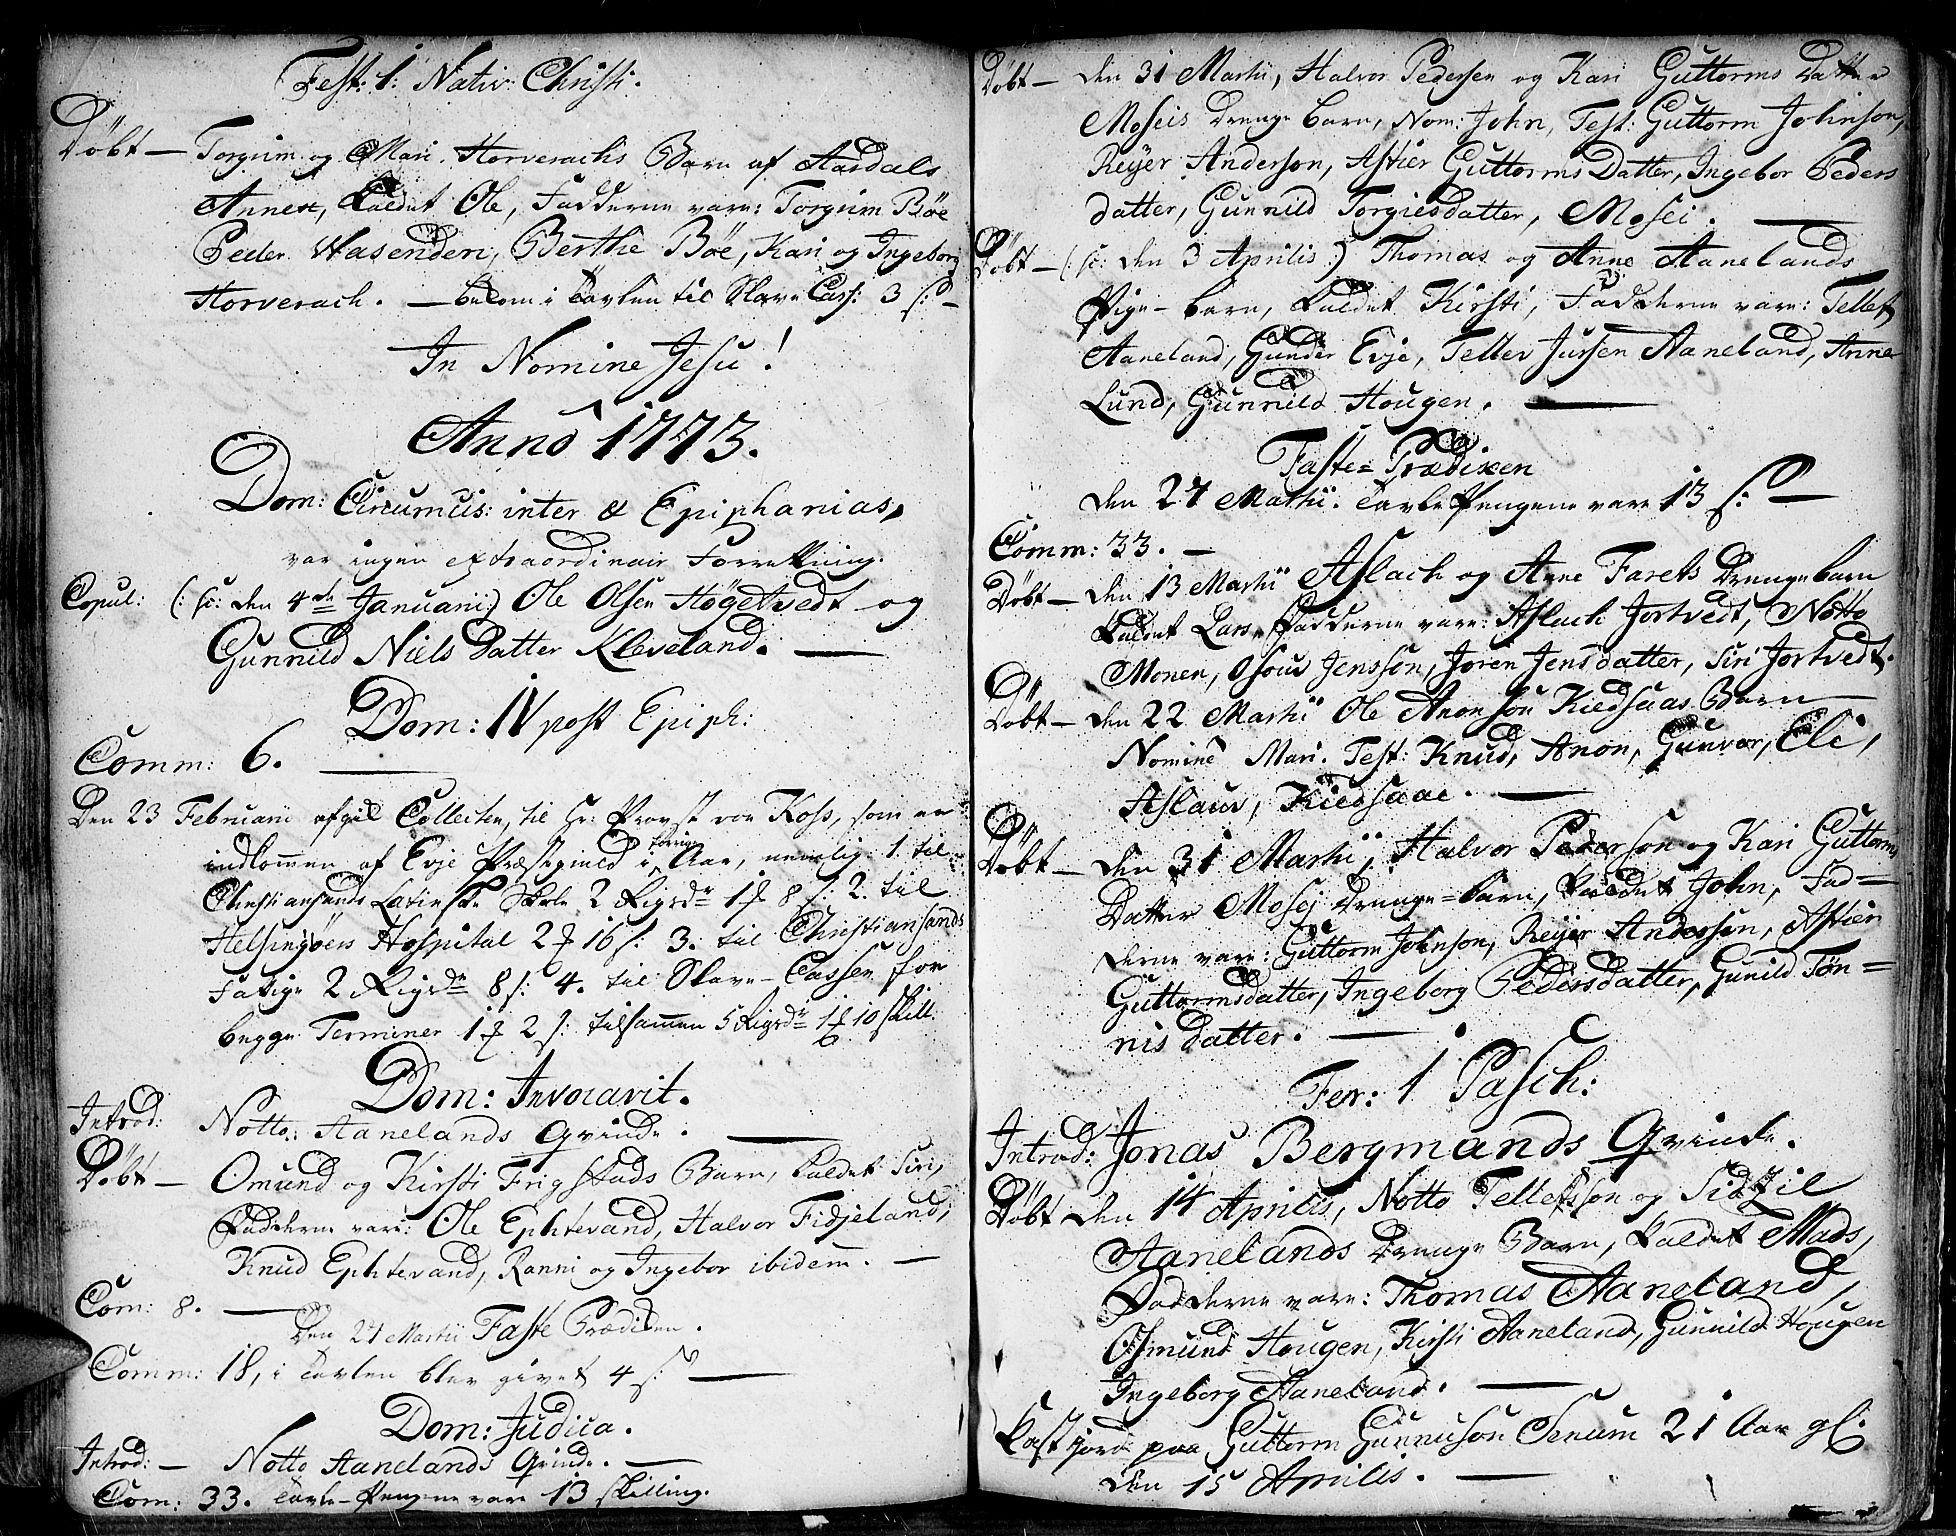 Fest: 1: Nativ: Christi.
Döbt — Torgrim og Mari Horverachs Barn af Aardals
Annex, kaldet Ole, Fadderne vare: Torgrim Böe
Peder Wasenden, Berthe Böe, Kari og Ingeborg
Horverach. — bekom i Tavlen til Slave Cass: 3 s: —
In Nomine Jesu!
Anno 1773.
Dom: Circumcis: inter & Epiphanias,
var ingen extraordinair Forretning.
Copul: (: sc: den 4de Januarii:) Ole Olsen Högetvedt og
Gunnild Niels Datter Kleveland. —
Dom: IV post Epiph:
Comm: 6. —
Den 23 Februarii afgik Collecten, til Hr: Provst von Koss, som er
indkommen af Evje Præstegield i forrige Aar, nemlig 1. til
Christiansands Latinske Skole 2 Rigsdr 1 ƒ 8 s: 2. til
Helsingöers Hospital 2 ƒ 16 s: 3. til Christiansands
Fattige 2 Rigsdr 8 s: 4. til Slave-Cassen for
begge Terminer 1 ƒ 2 s: tilsammen 5 Rigsdr 1 ƒ 10 skill:
Dom: Invocavit.
Introd: Notto Aanelands Qvinde. —
Döbt — Omund og Kirsti Frigstads Barn, kaldet Siri,
Fadderne vare: Ole Ephtevand, Halvor Fidjeland,
Knud Ephtevand, Ranni og Ingebor ibidem. —
Com: 8. —
Den 24 Martii Faste Prædiken.
Comm: 18, i Tavlen blev givet 4 s: —
Dom: Judica.
Introd: — Notto Aanelands Qvinde. —
Com: 33. Tavle-Pengene vare 13 skilling.
Döbt — den 31 Martii, Halvor Pedersen og Kari Guttorms Datter
Moseis Drenge barn, Nom: John, Test: Guttorm Johnson,
Reyer Anderson, Astier Guttorms Datter, Ingebor Peders
datter, Gunnild Torgiesdatter, Mosei. —
Döbt — (: sc: den 3 Aprilis:) Thomas og Anne Aanelands
Pige-barn, kaldet Kirsti, Fadderne vare: Tellef
Aaneland, Gunder Evje, Tellev Jursen Aaneland, Anne
Lund, Gunnild Hougen. —
Faste-Prædiken
den 24 Martii. Tavle Pengene vare 13 s: —
Comm: 33. —
Döbt — den 13 Martii Aslach og Anne Farets Drengebarn
kaldet Lars, Fadderne vare: Aslach Jortvedt, Notto
Monen, Osour Jensson, Joren Jensdatter, Siri Jortvedt.
Döbt — den 22 Martii Ole Anonsön Kiedsaas Barn
Nomine Mari. Test: Knud, Anon, Gunvor, Eli,
Aslaur, Kiedsaae. —
Döbt — den 31 Martii, Halvor Pederson og Kari Guttorms
Datter Mosej Drenge-barn, kaldet John, Fad-
derne vare: Guttorm Johnson, Reyer Anderson, Astier
Guttormsdatter, Ingeborg Pedersdatter, Gunild Tön-
nis datter. —
Fer: 1 Pasch:
Introd: Jonas Bergmands Qvinde.
Döbt den 14 Aprilis, Notto Tellefsson og Sidzil
Aanelands Drenge Barn, kaldet Mads,
Fadderne vare: Thomas Aaneland,
Osmund Hougen, Kirsti Aaneland, Gunnild Hougen
Ingeborg Aaneland. —
Kast jord paa Guttorm Gunnuson Senum 21 Aar gl:
den 15 Aprilis. —